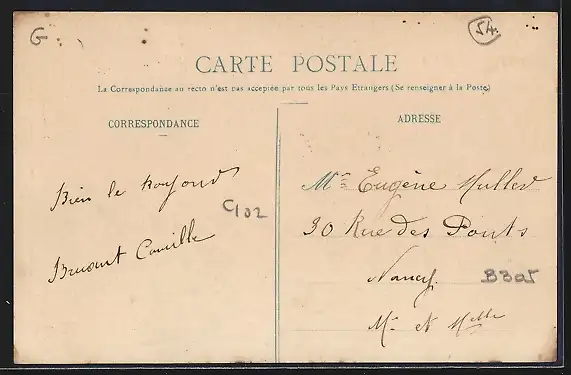 G.
54
CARTE POSTALE
La Correspondance au recto n'est pas acceptée par tous les Pays Etrangers (Se renseigner à la Poste)
CORRESPONDANCE
ADRESSE
Bien le
Camille
C102
Mr Eugène Muller
30 Rue des Ponts
Nancy
B305
M. et Melle